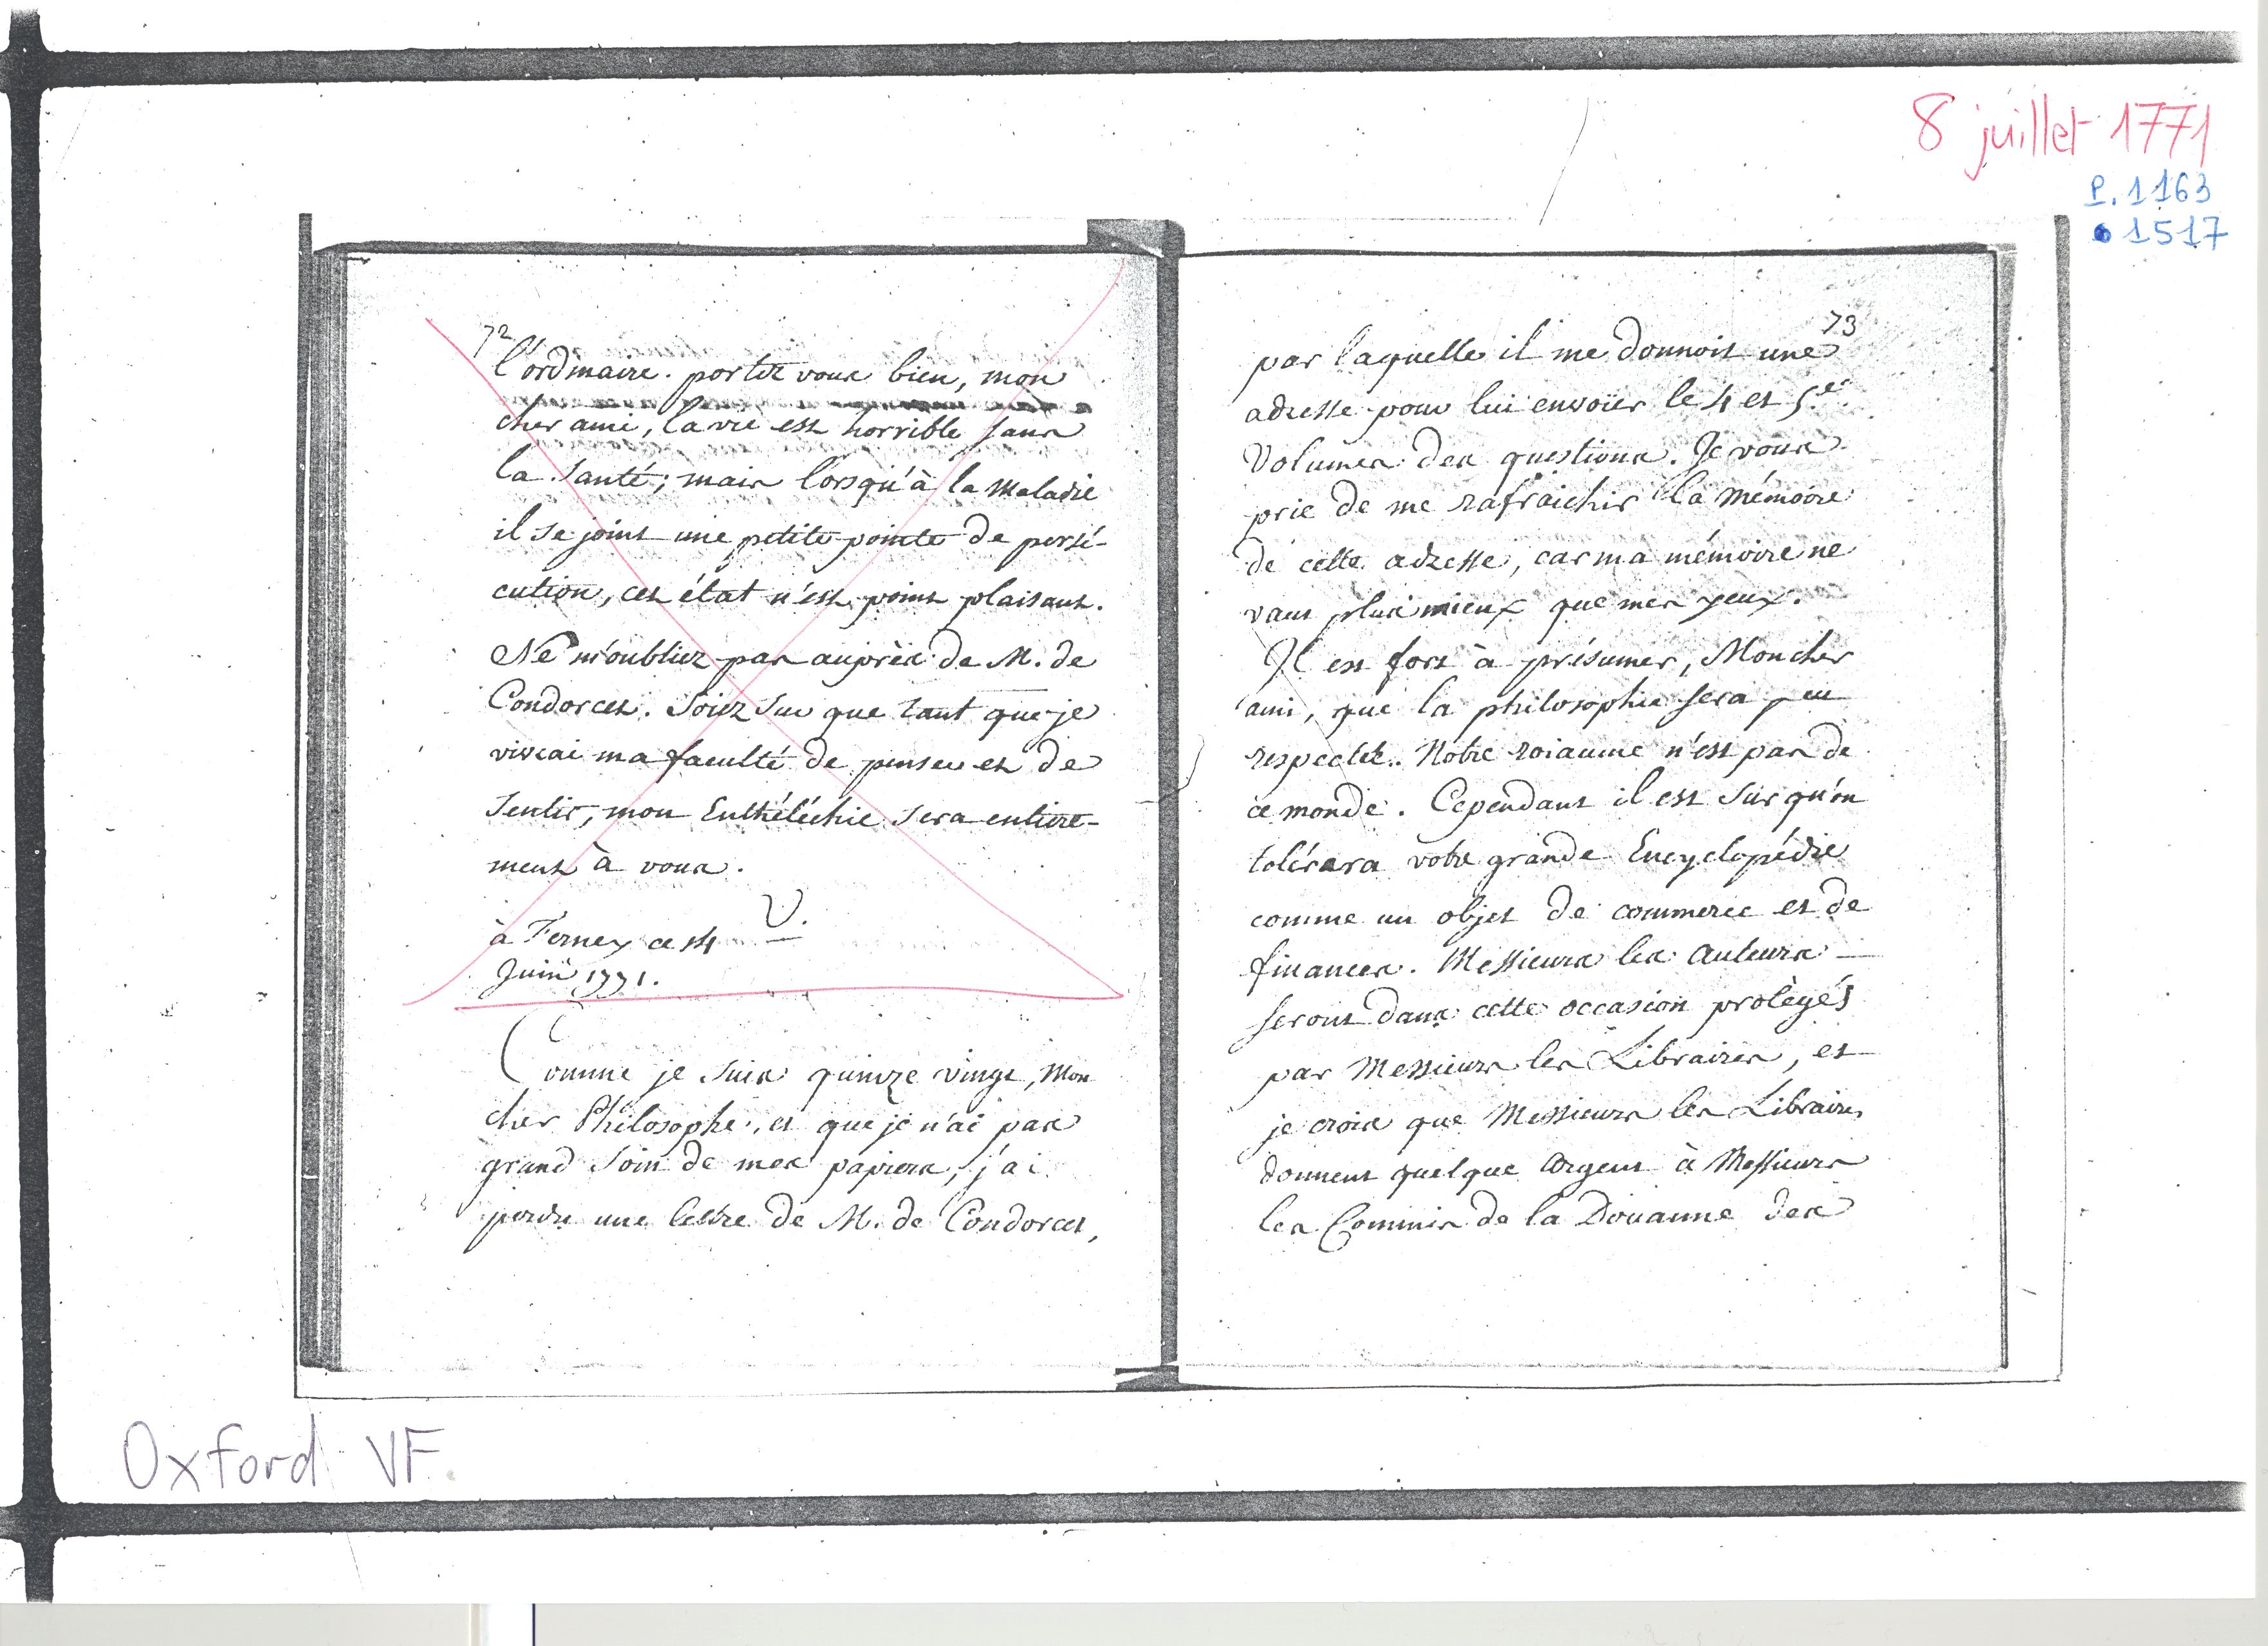 8 juillet 1771
P. 1163
1517
72
l'ordinaire. portez vous bien, mon
cher ami, la vie est horrible sans
la santé; mais lorsqu'à la maladie
il se joint une petite pointe de persé-
cution, cet état n'est point plaisant.
Ne m'oubliez pas auprès de M. de
Condorcet. Soiez sur que tant que je
vivrai ma faculté de penser et de
sentir, mon Enthéléchie sera entière-
ment à vous.
V.
à Ferney ce 14
Juin 1771.
Comme je suis quinze vingt, Mon
cher Philosophe, et que je n'ai pas
grand soin de mes papiers, j'ai
perdu une lettre de M. de Condorcet,
73
par laquelle il me donnoit une
adresse pour lui envoïer le 4 et 5e.
Volumes des questions. Je vous
prie de me rafraichir la mémoire
de cette adresse, car ma mémoire ne
vaut plus mieux que mes yeux.
Il est fort à présumer, Mon cher
ami, que la philosophie sera peu
respectée. Notre roiaume n'est pas de
ce monde. Cependant il est sûr qu'on
tolérera votre grande Encyclopédie
comme un objet de commerce et de
finances. Messieurs les auteurs
seront dans cette occasion protègés
par Messieurs les Libraires, et
je crois que Messieurs les Libraires
donnent quelque argent à Messieurs
les Commis de la Douanne des
Oxford VF